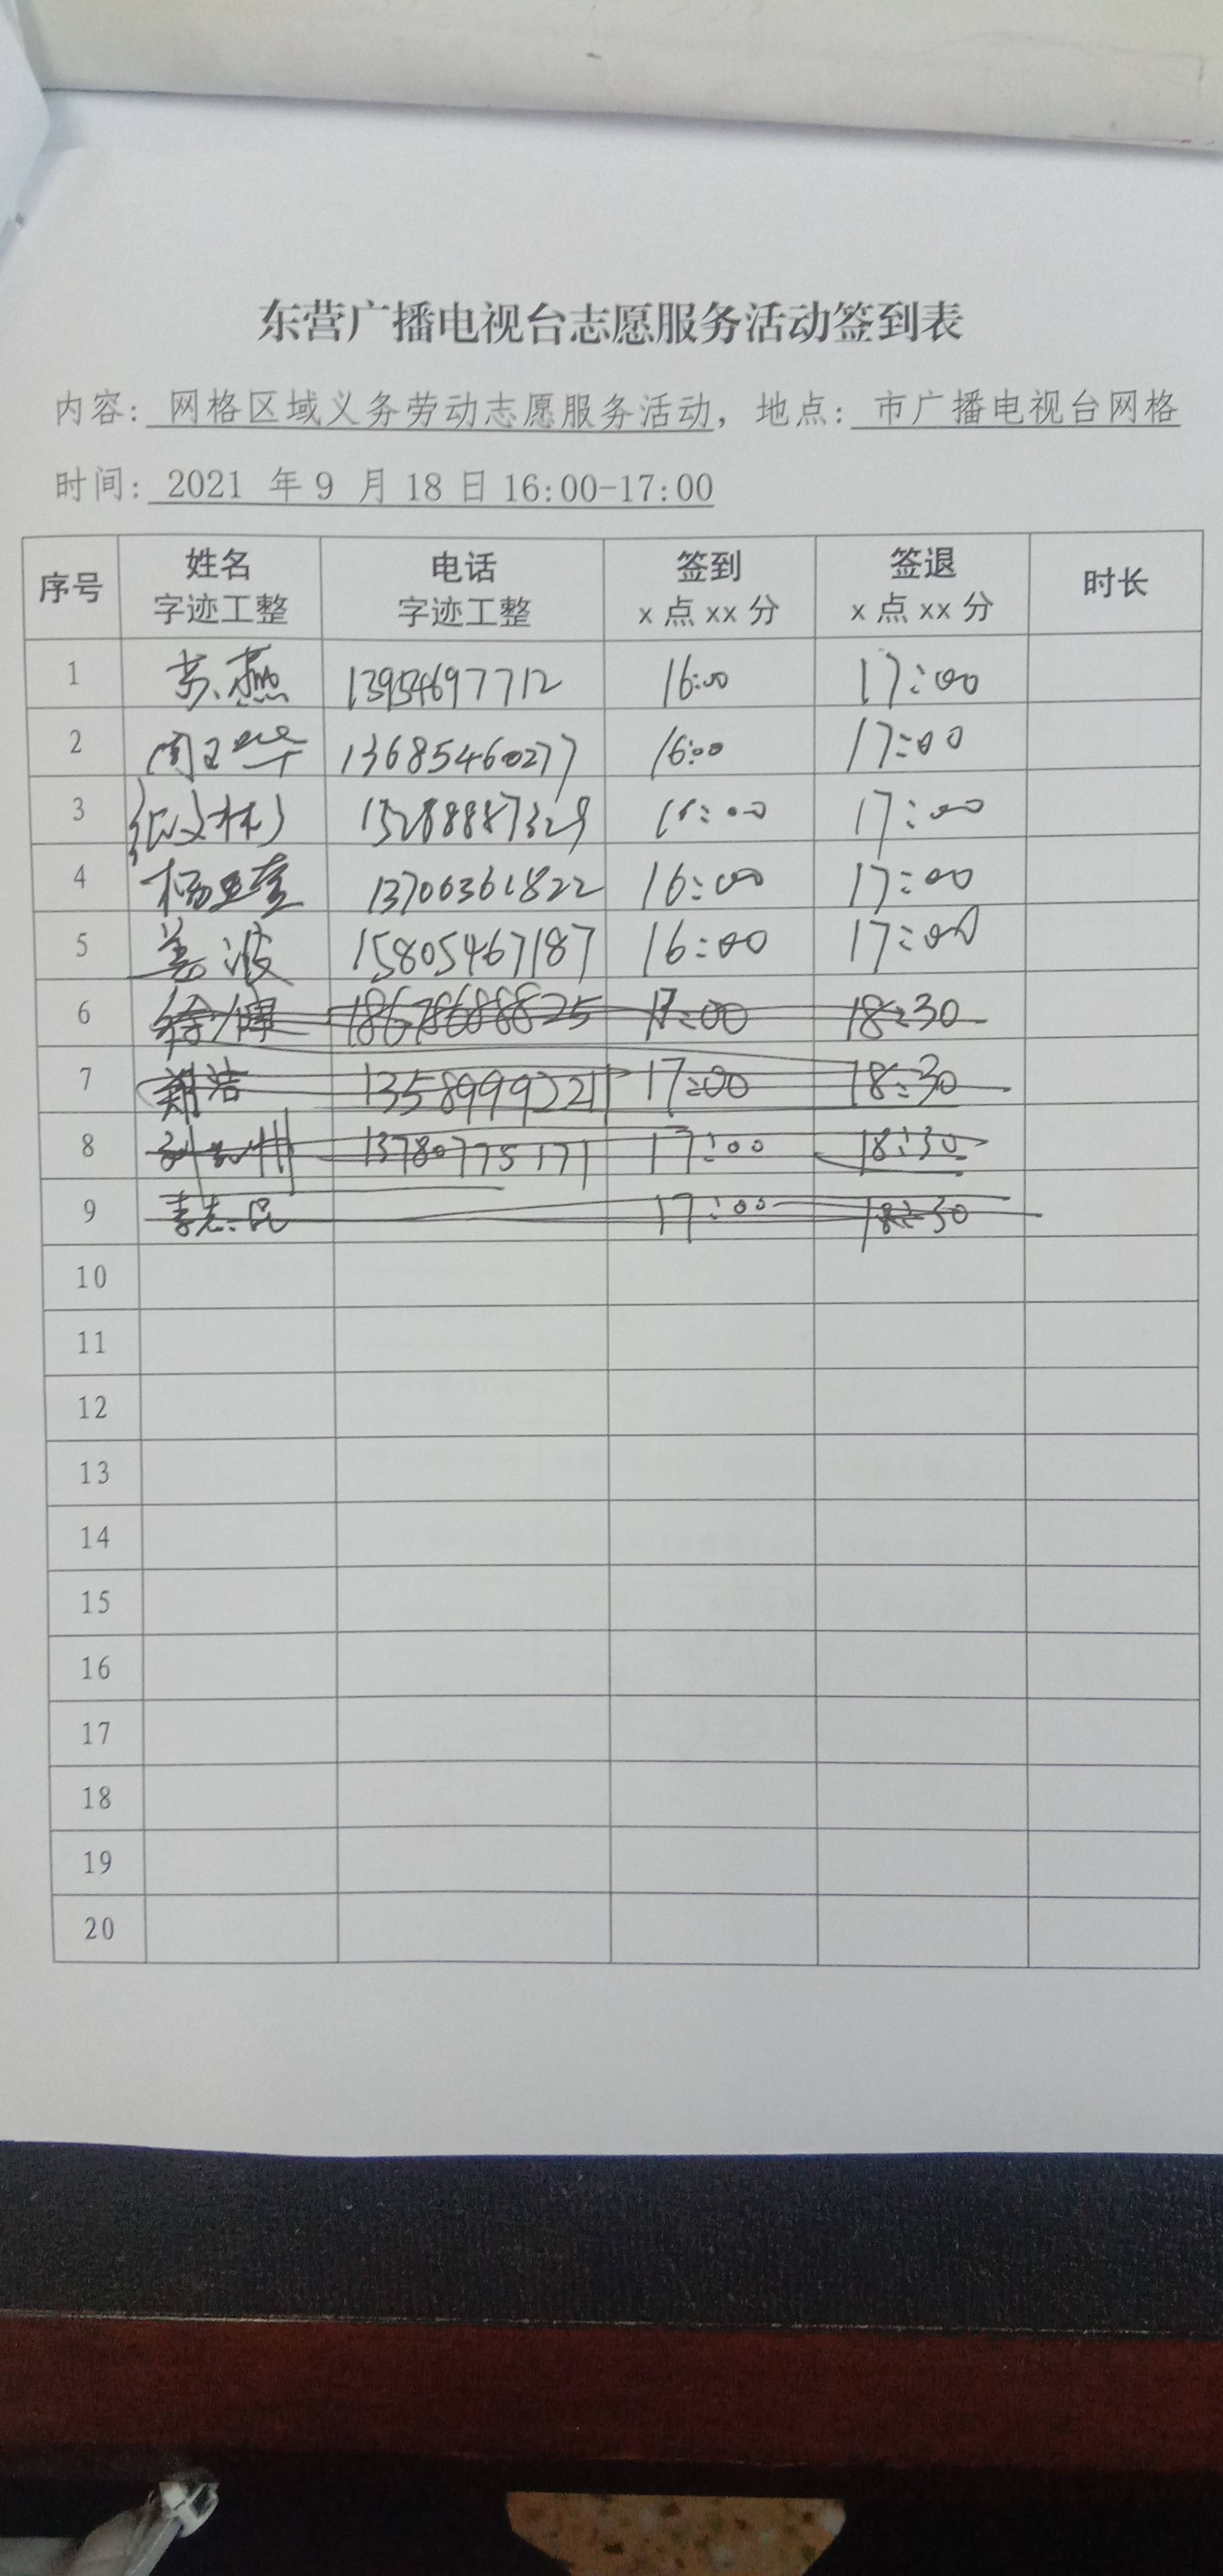 东营广播电视台志愿服务活动签到表
内容: 网格区域义务劳动志愿服务活动, 地点: 市广播电视台网格
时间: 2021 年 9 月 18 日 16:00-17:00
序号 姓名 字迹工整 电话 字迹工整 签到 x 点 xx 分 签退 x 点 xx 分 时长
1 苏燕 13954697712 16:00 17:00
2 13685460277 16:00 17:00
3 15288887329 16:00 17:00
4 13706361822 16:00 17:00
5 姜波 15805467187 16:00 17:00
6 18678688825 17:00 18:30
7 郑浩 13589992211 17:00 18:30
8 13780775171 17:00 18:30
9 李志民 17:00 18:30
10
11
12
13
14
15
16
17
18
19
20